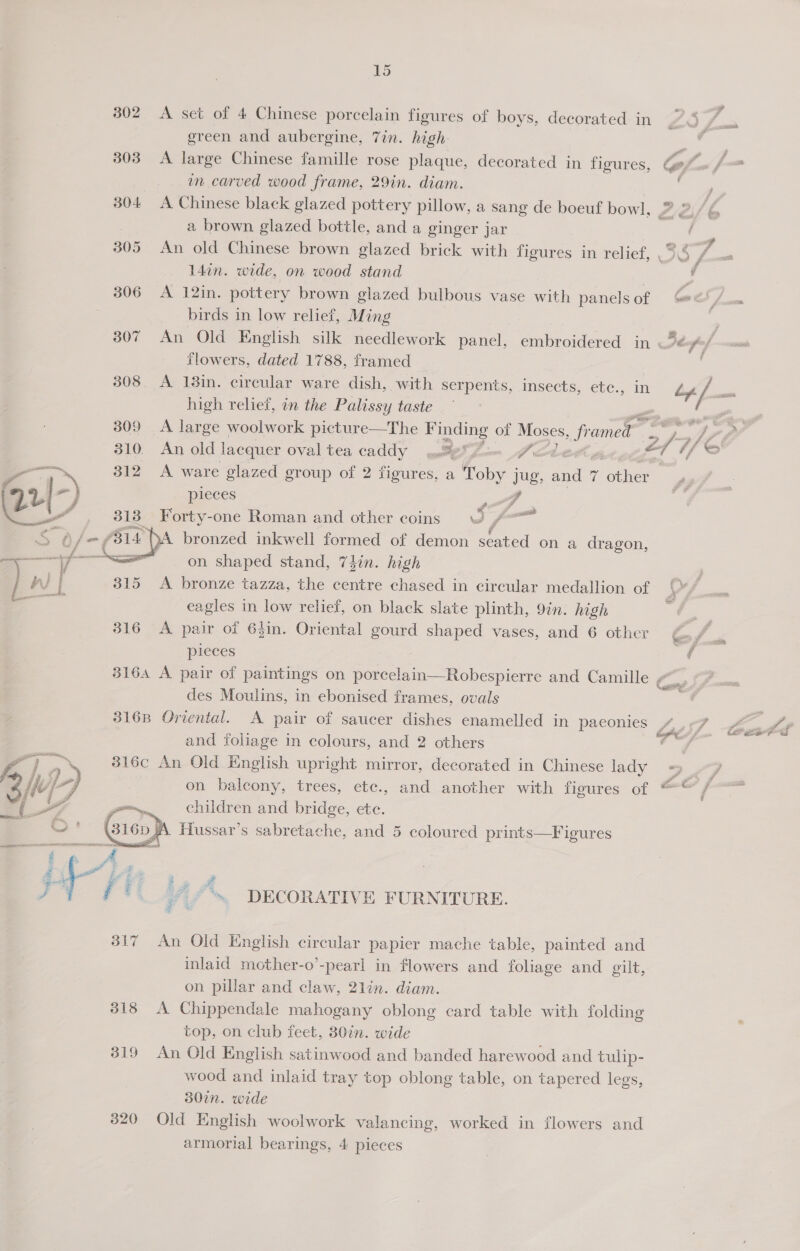 15
302 A set of 4 Chinese porcelain figures of boys, decorated in
green and aubergine, 7in. high
303 A large Chinese famille rose plaque, decorated in figures,
in carved wood frame, 29in. diam.
304 A Chinese black glazed pottery pillow, a sang de boeuf bowl,
a brown glazed bottle, and a ginger jar
305 An old Chinese brown glazed brick with figures in relief,
14in. wide, on wood stand
306 A 12in. pottery brown glazed bulbous vase with panels of
birds in low relief, Ming
307 An Old English silk needlework panel, embroidered in
flowers, dated 1788, framed
308 A 13in. circular ware dish, with serpents, insects, etc., in
high relief, in the Palissy taste
309 A large woolwork picture—The Finding of Moses, framed
310 An old lacquer oval tea caddy
312 A ware glazed group of 2 figures, a Toby jug, and 7 other
pieces
313 Forty-one Roman and other coins
314 A bronzed inkwell formed of demon seated on a dragon,
on shaped stand, 7½in. high
315 A bronze tazza, the centre chased in circular medallion of
eagles in low relief, on black slate plinth, 9in. high
316 A pair of 6½in. Oriental gourd shaped vases, and 6 other
pieces
316A A pair of paintings on porcelain—Robespierre and Camille
des Moulins, in ebonised frames, ovals
316B Oriental. A pair of saucer dishes enamelled in paeonies
and foliage in colours, and 2 others
316C An Old English upright mirror, decorated in Chinese lady
on balcony, trees, etc., and another with figures of
children and bridge, etc.
316D A Hussar's sabretache, and 5 coloured prints—Figures
DECORATIVE FURNITURE.
317 An Old English circular papier mache table, painted and
inlaid mother-o'-pearl in flowers and foliage and gilt,
on pillar and claw, 21in. diam.
318 A Chippendale mahogany oblong card table with folding
top, on club feet, 30in. wide
319 An Old English satinwood and banded harewood and tulip-
wood and inlaid tray top oblong table, on tapered legs,
30in. wide
320 Old English woolwork valancing, worked in flowers and
armorial bearings, 4 pieces